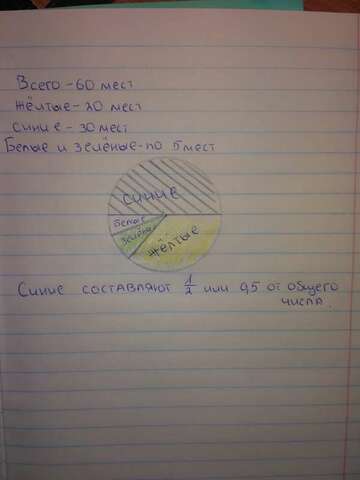 Всего - 60 мест
Жёлтые - 20 мест
Синие - 30 мест
Белые и зелёные - по 5 мест
Синие
Белые
Зелёные
Жёлтые
Синие составляют 1/2 или 0,5 от общего
числа.